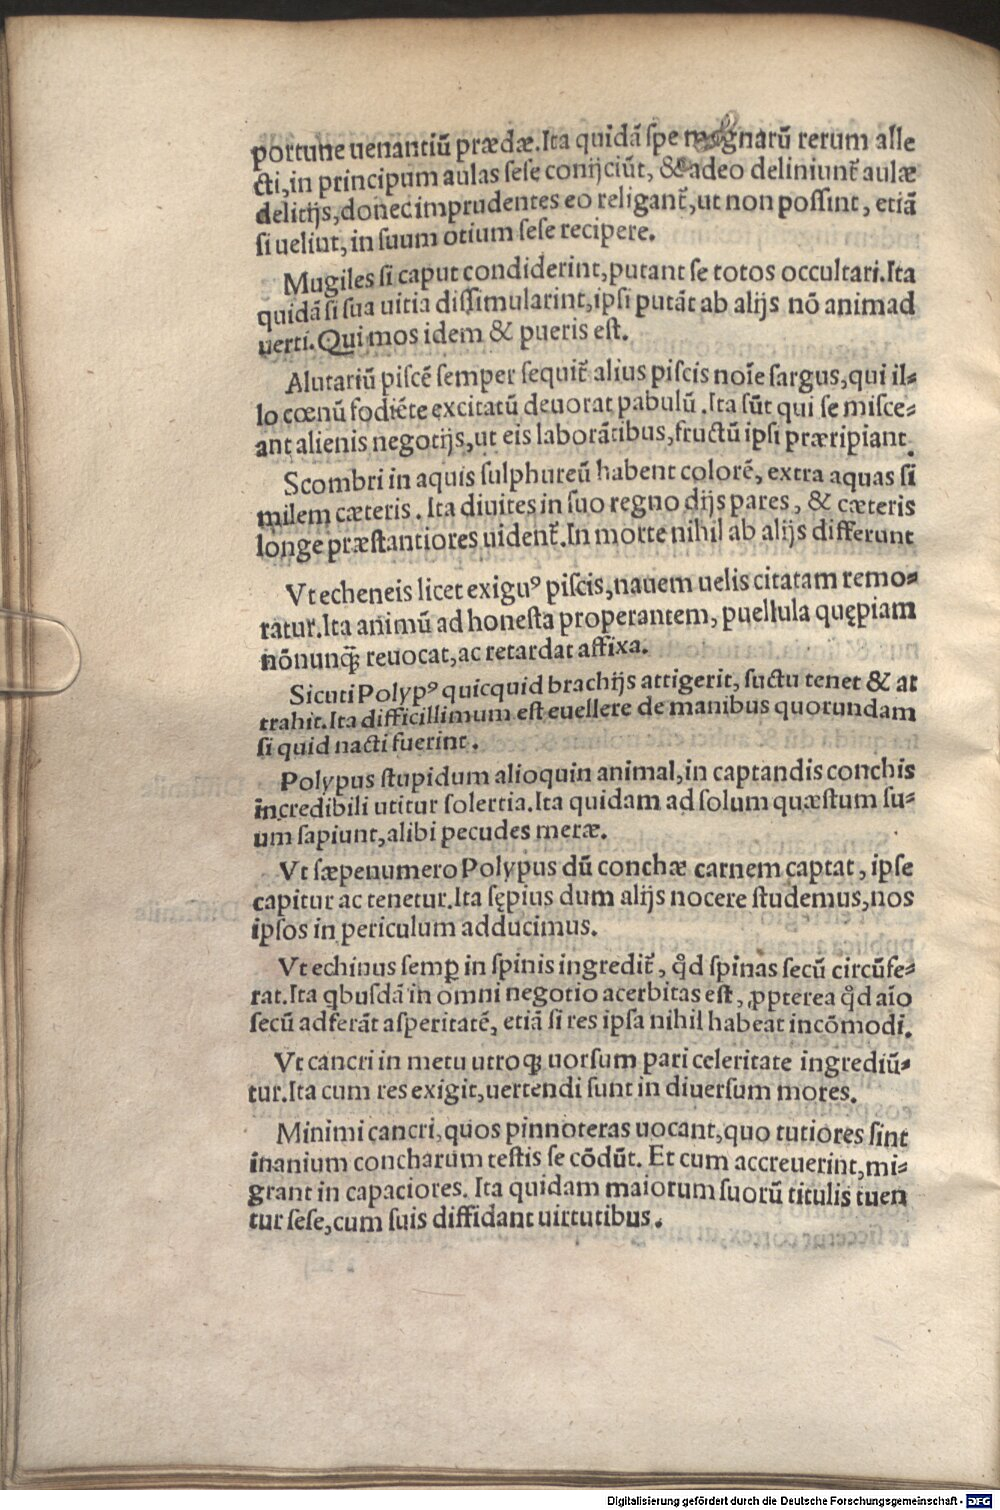 portune uenantiū prædæ. Ita quidā ſpe magnarū rerum alle
cti, in principum aulas ſeſe conijciūt, & adeo deliniunt̃ aulæ
delicijs, donec imprudentes eo religant̃, ut non poſſint, etiā
ſi uelint, in ſuum otium ſeſe recipere.
Mugiles ſi caput condiderint, putant ſe totos occultari. Ita
quidā ſi ſua uitia diſſimularint, ipſi putāt ab alijs nō animad
uerti. Qui mos idem & pueris eſt.
Alutariū piſcē ſemper ſequit̃ alius piſcis noīe ſargus, qui il⸗
lo cœnū fodiēte excitatū deuorat pabulū. Ita ſūt qui ſe miſce⸗
ant alienis negotijs, ut eis laborātibus, fructū ipſi præripiant.
Scombri in aquis ſulphureū habent colorē, extra aquas ſi
milem cæteris. Ita diuites in ſuo regno dijs pares, & cæteris
lōnge præſtantiores uident̃. In morte nihil ab alijs differunt
Vt echeneis licet exiguꝰ piſcis, nauem uelis citatam remo⸗
ratur. Ita animū ad honeſta properantem, puellula quępiam
nōnunꝗ̃ reuocat, ac retardat affixa.
Sicuti Polypꝰ quicquid brachijs attigerit, ſuctu tenet & at
trahit. Ita difficillimum eſt euellere de manibus quorundam
ſi quid nacti fuerint.
Polypus ſtupidum alioquin animal, in captandis conchis
incredibili utitur ſolertia. Ita quidam ad ſolum quæſtum ſu⸗
um ſapiunt, alibi pecudes meræ.
Vt ſæpenumero Polypus dū conchæ carnem captat, ipſe
capitur ac tenetur. Ita ſępius dum alijs nocere ſtudemus, nos
ipſos in periculum adducimus.
Vt echinus ſemꝑ in ſpinis ingredit̃, ꝙd ſpinas ſecū circūfe⸗
rat. Ita qbuſdā in omni negotio acerbitas eſt, ꝓpterea ꝙd aīo
ſecū adferāt aſperitatē, etiā ſi res ipſa nihil habeat incōmodi.
Vt cancri in metu utroqꝫ uorſum pari celeritate ingrediū⸗
tur. Ita cum res exigit, uertendi ſunt in diuerſum mores.
Minimi cancri, quos pinnoteras uocant, quo tutiores ſint
inanium concharum teſtis ſe cōdūt. Et cum accreuerint, mi⸗
grant in capaciores. Ita quidam maiorum ſuorū titulis tuen
tur ſeſe, cum ſuis diffidant uirtutibus.
Digitalisierung gefördert durch die Deutsche Forschungsgemeinschaft - DFG